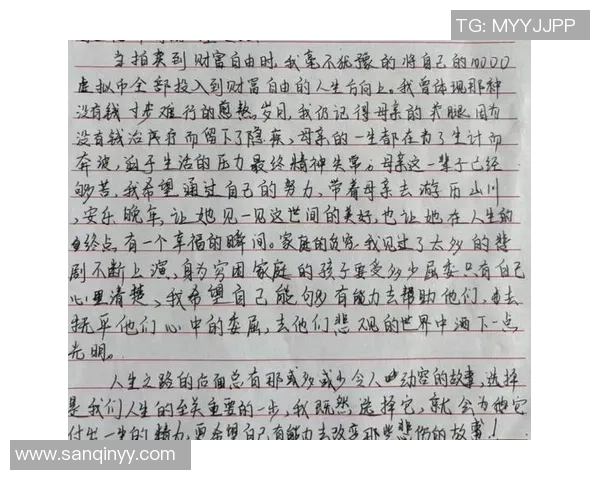 TG: MYYJJPP
当拍卖到财富自由时，我毫不犹豫的将自己的10000
虚拟币全部投入到财富自由的人生方向上。我曾体现那种
没有钱寸步难行的 岁月，我仍记得母亲的 腿因为
没有钱治疗而留下了隐疾、母亲的一生都在为了生计而
奔波，迫于生活的压力最终精神失常。母亲这一辈子已经
够苦，我希望通过自己的努力，带着母亲去游历山川
，安乐晚年，让她见一见这世间的美好，也让她在人生的
终点有一个幸福的瞬间。家庭的贫穷，我见过了太多的悲
剧不断上演，身为穷困家庭的孩子要受多少屈委只有自己
心里清楚、我希望自己能够有能力去帮助他们，去
抚平他们心中的委屈，去他们悲观的世界中洒下一点
光明。
人生之路的后面总有那或多或少令人动容的故事，选择
是我们人生的至关重要的一步，我既然选择它，就会为它
付出一生的精力，更希望自己有能力去改变那些悲伤的故事！
www.sanqinyy.com